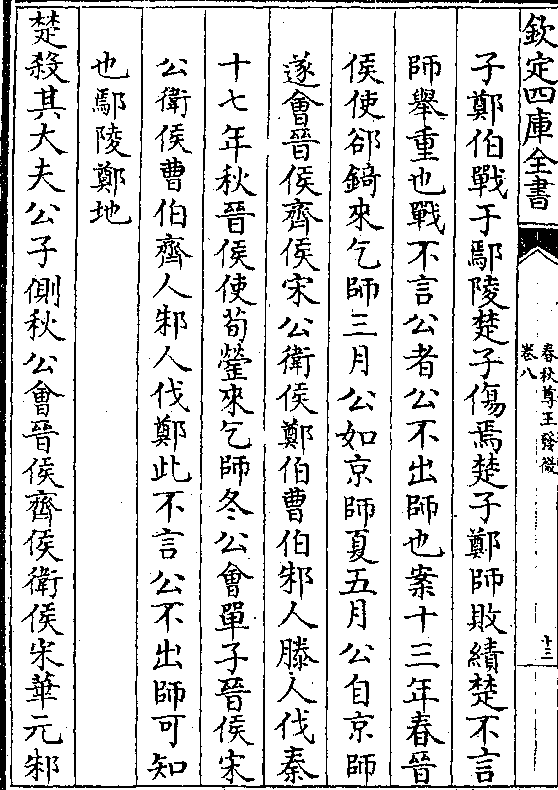 欽定四庫全書
春秋尊王發微
卷八
十三
子鄭伯戰于鄢陵楚子傷焉楚子鄭師敗績楚不言
師舉重也戰不言公者公不出師也案十三年春晉
侯使郤錡來乞師三月公如京師夏五月公自京師
遂會晉侯齊侯宋公衛侯鄭伯曹伯邾人滕人伐秦
十七年秋晉侯使荀罃來乞師冬公會單子晉侯宋
公衛侯曹伯齊人邾人伐鄭此不言公不出師可知
也鄢陵鄭地
楚殺其大夫公子側秋公會晉侯齊侯衛侯宋華元邾